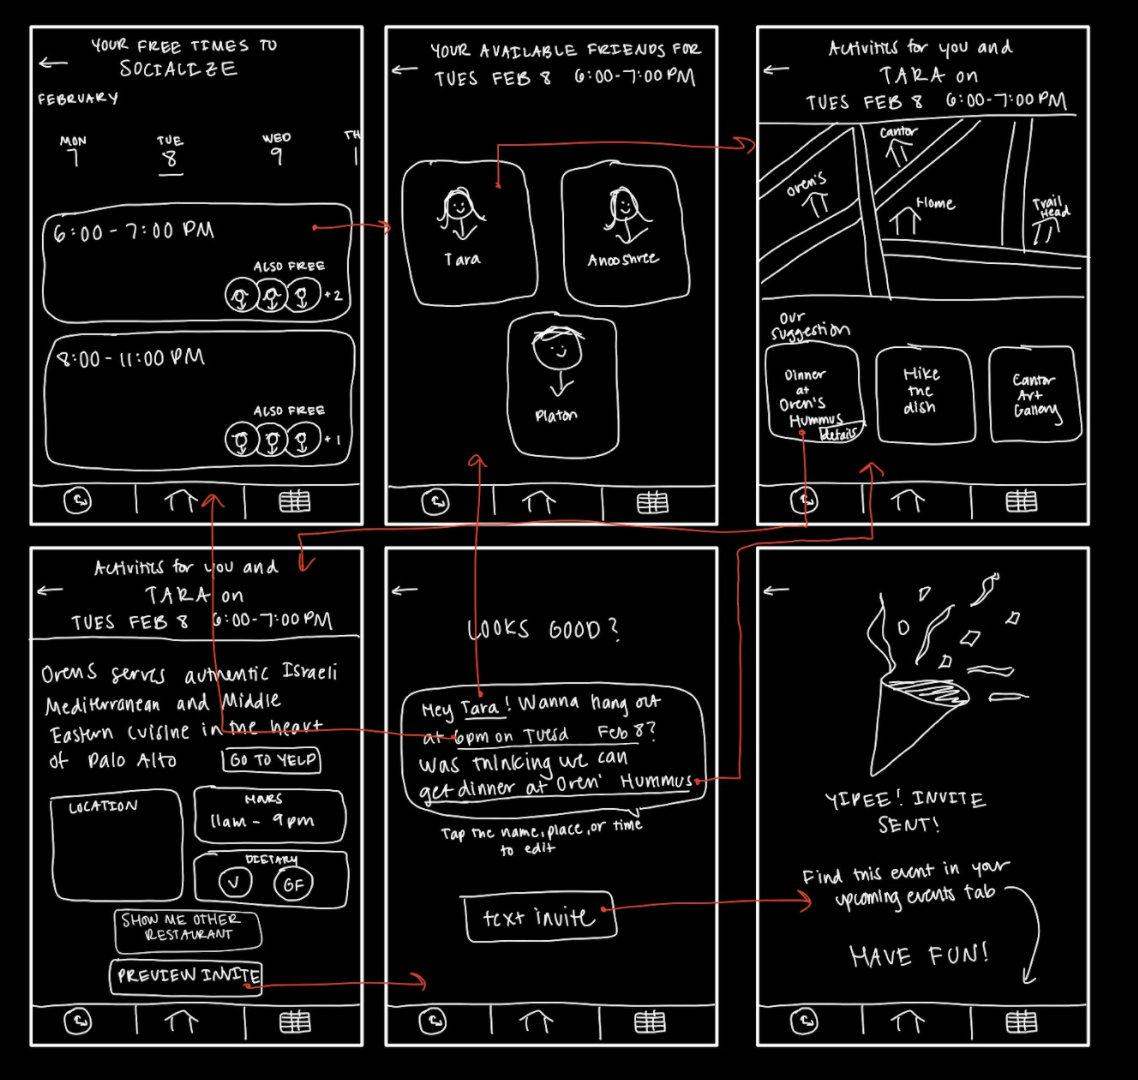 YOUR FREE TIMES TO
SOCIALIZE
FEBRUARY
MON
7
TUE
8
WED
9
TH
1
6:00 - 7:00 PM
ALSO FREE
+2
8:00 - 11:00 PM
ALSO FREE
+1
YOUR AVAILABLE FRIENDS FOR
TUES FEB 8 6:00-7:00PM
Tara
Anooshree
Platon
Activities for you and
TARA on
TUES FEB 8 6:00-7:00PM
Cantor
Oren's
Home
Trail
Head
Our
Suggestion
Dinner
at
Oren's
Hummus
details
Hike
the
dish
Cantor
Art
Gallery
Activities for you and
TARA on
TUES FEB 8 6:00-7:00PM
Orens serves authentic Israeli
Mediterranean and Middle
Eastern cuisine in the heart
of Palo Alto
GO TO YELP
LOCATION
HOURS
11am - 9pm
DIETARY
V
GF
SHOW ME OTHER
RESTAURANT
PREVIEW INVITE
LOOKS GOOD?
Hey Tara! Wanna hang out
at 6pm on Tuesd Feb 8?
was thinking we can
get dinner at Oren' Hummus
Tap the name, place, or time
to edit
text invite
YIPEE! INVITE
SENT!
Find this event in your
upcoming events tab
HAVE FUN!